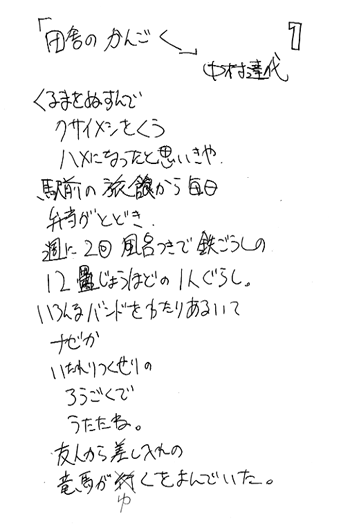 「田舎のかんごく」 1
中村達代
くるまをぬすんで
クサイメシをくう
ハメになったと思いきや.
駅前の旅館から毎日
弁当がとどき.
週に2回風呂つきで鉄ごうしの
12畳じょうほどの1人ぐらし。
いろんなバンドをわたりあるいて
ナゼか
いたれりつくせりの
ろうごくで
うたたね。
友人から差し入れの
竜馬がくをよんでいた。
ゆ